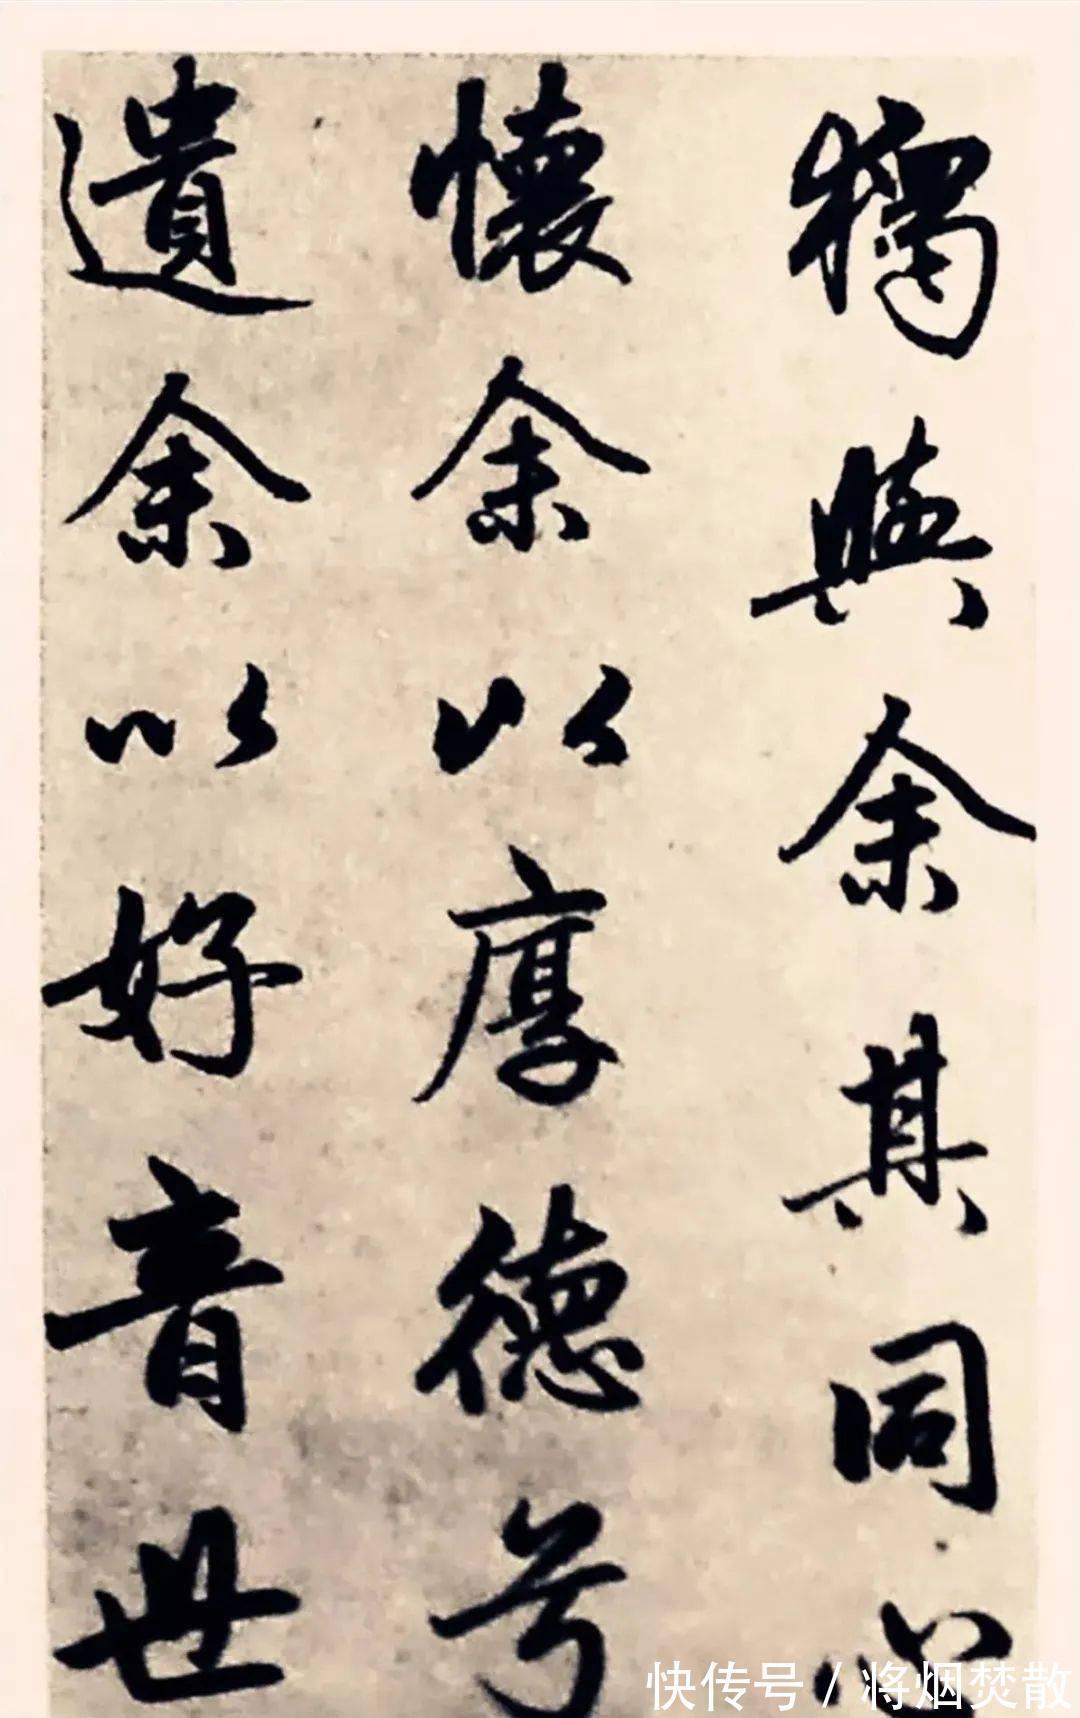 獨與余其同心
懷余以厚德兮
遺余以好音世
快传号/将烟焚散